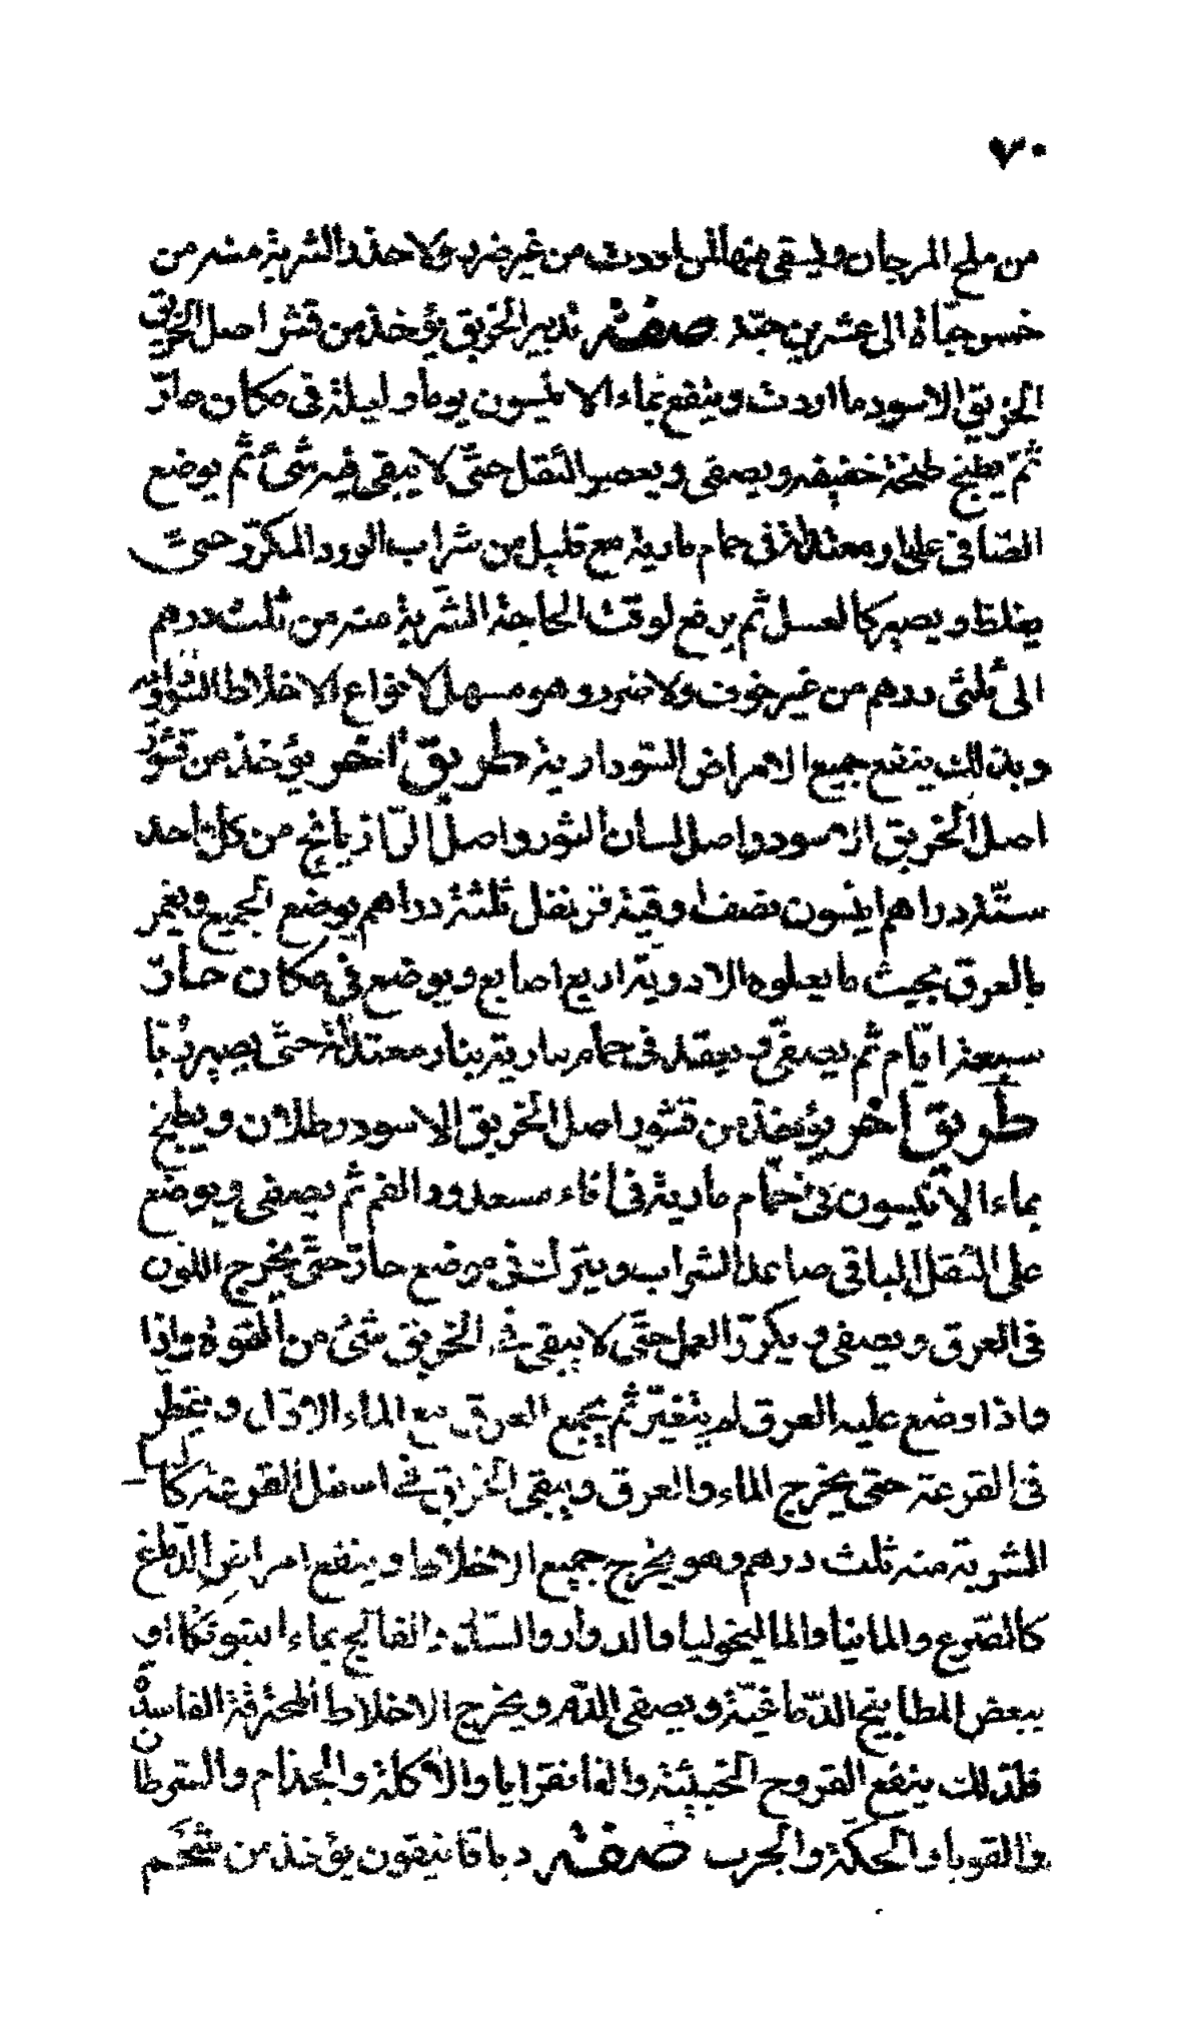 ٧٠
من ملح المرجان ويسقى منها من غير ضرر ولا حذر الشربة منه من
خمس حبّاة الى عشرين حبّة صفة تدبير الخربق يؤخذ من قشر اصل الخربق
الخربق الاسود ما اردت وينقع بماء الانيسون يوما وليلة فى مكان حارّ
ثمّ يطبخ طبخة خفيفه ويصفى ويعصر الثقل حتّى لا يبقى فيه شئ ثم يوضع
الصّافى على نار معتدلة فى حمام مارية مع قليل من شراب الورد المكرّر حتىّ
يغلظ ويصير كالعسل ثم يرفع لوقت الحاجة الشّربة منه من ثلث درهم
الى ثلثى درهم من غير خوف ولا ضرر وهو مسهل لانواع الاخلاط السّوداويه
وبذلك ينفع جميع الامراض السّوداوية طريق اخر يؤخذ من قشور
اصل الخربق الاسود واصل لسان الثور واصل الرّازيانج من كل واحد
ستّة دراهم انيسون نصف اوقية قرنفل ثلثة دراهم يوضع الجميع ويغمر
بالعرق بحيث ما يعلوه الادوية اربع اصابع ويوضع فى مكان حارّ
سبعة ايّام ثم يصفّى ويعقد فى حمام مارية بنار معتدلة حتّى يصير ربّا
طريق اخر يؤخذ من قشور اصل الخربق الاسود رطلان ويطبخ
بماء الانيسون فى حمّام مارية فى اناء مسدود الفم ثم يصفى ويوضع
على الثقل الباقى صاعد الشراب ويترك فى موضع حارّ حتّى يخرج اللون
فى العرق ويصفى ويكرّر العمل حتّى لا يبقى فى الخربق شئ من القوة واذا
واذا وضع عليه العرق لم يتغيّر ثم يجمع العرق مع الماء الاوّل ويقطّر
فى القرعة حتى يخرج الماء والعرق ويبقى الخربق فى اسفل القرعة كالرب
الشربة منه ثلث درهم وهو يخرج جميع الاخلاط وينفع امراض الدّماغ
كالصّرع والمانيا والماليخوليا والدوار والسّكتة والفالج بماء ابتونكا او
ببعض المطابيخ الدّماغيّة ويصفى الدّم ويخرج الاخلاط المحترقة الفاسدة
فلذلك ينفع القروح الخبيثة والغانقرايا والاكلة والجذام والسّرطان
والقوبا والحكّة والجرب صفة دياقانيقون يؤخذ من شحم